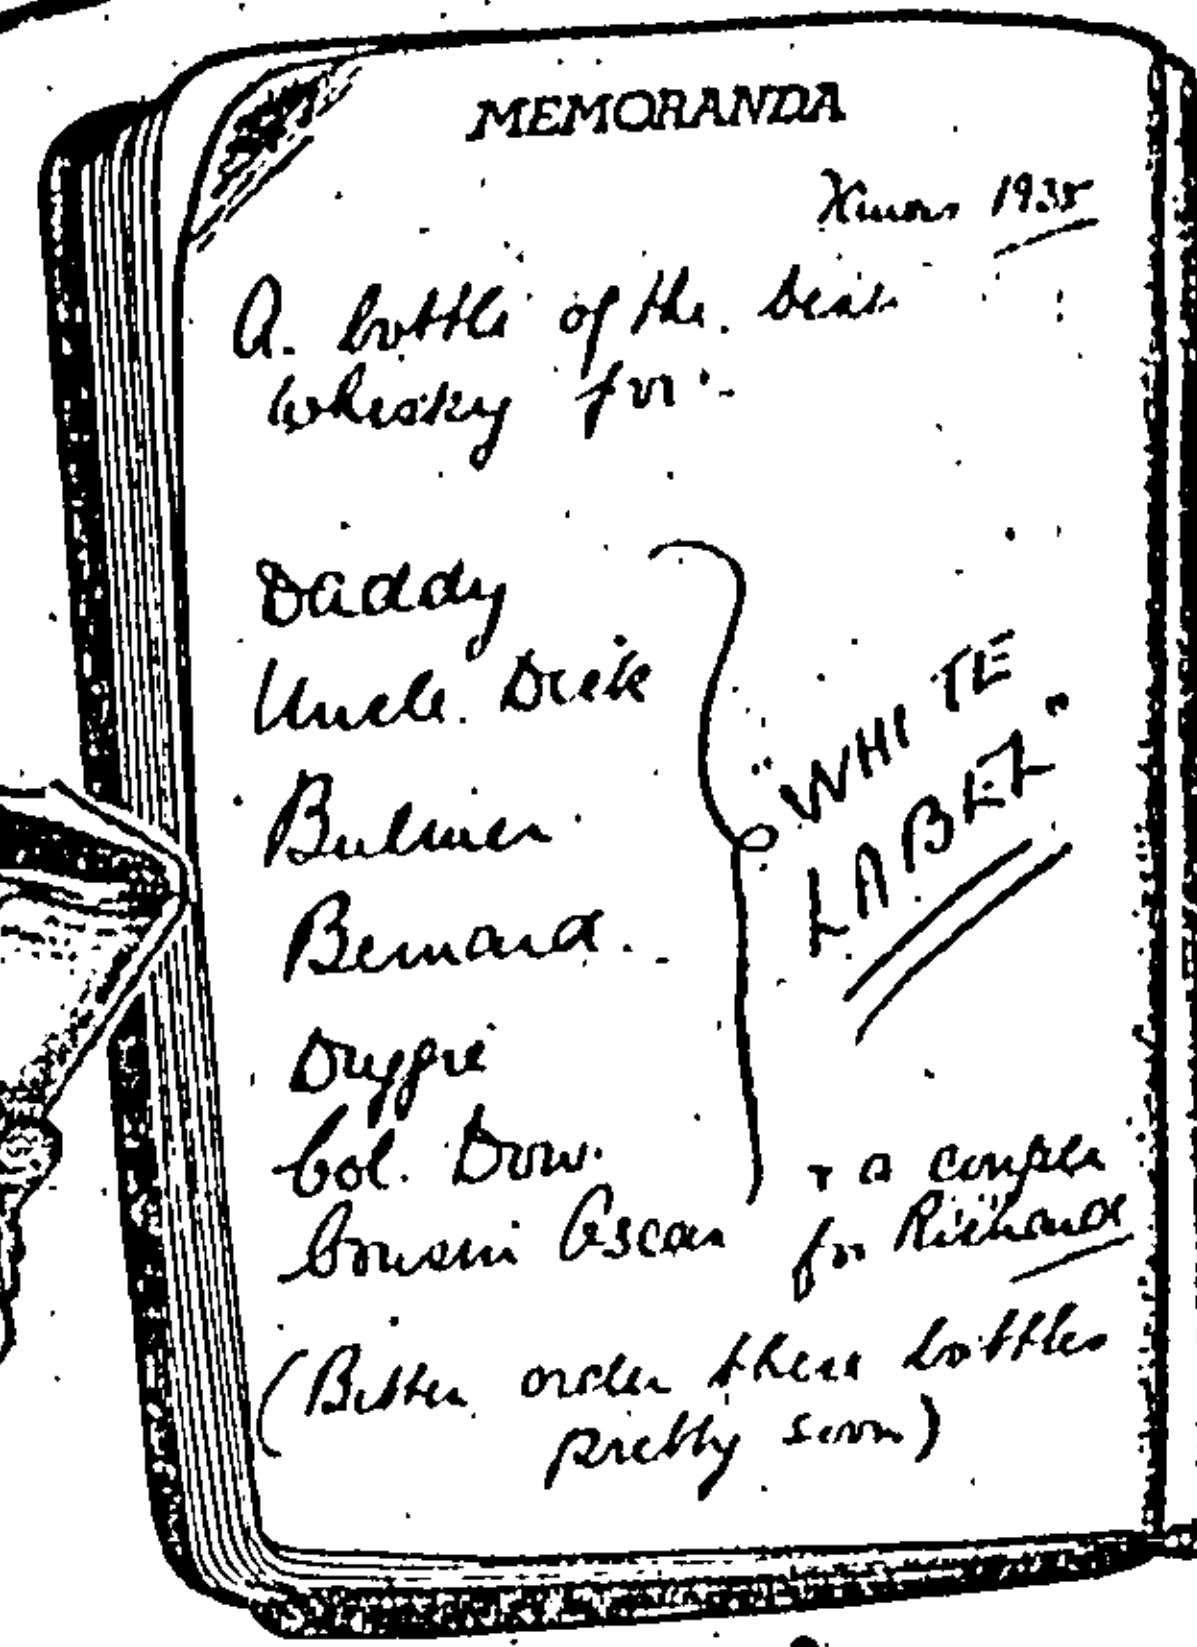 MEMORANDA
Xmas 1935
A bottle of the best
whisky for:-
Daddy
Uncle Dick
Bulmer
Bernard
Duggie
Col. Dow.
Cousin Oscar
"WHITE
LABEL"
+ a couple
for Richard
(Better order these bottles
pretty soon)